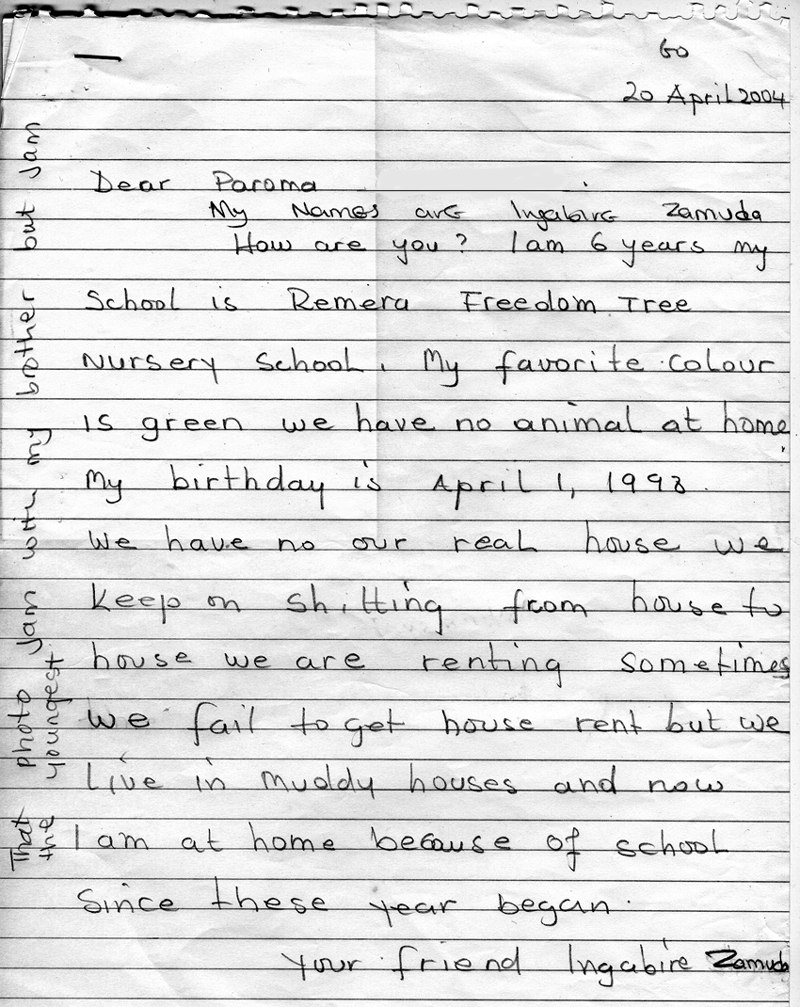 Go
20 April 2004
Dear Paroma
My Names are Ingabire Zamuda
How are you? I am 6 years my
School is Remera Freedom Tree
Nursery School. My favorite colour
is green we have no animal at home.
My birthday is April 1, 1998.
We have no our real house we
keep on shitting from house to
house we are renting sometimes
we fail to get house rent but we
Live in muddy houses and now
I am at home because of school
Since these year began.
your friend Ingabire Zamuda
That photo Iam with my brother but Iam
the youngest